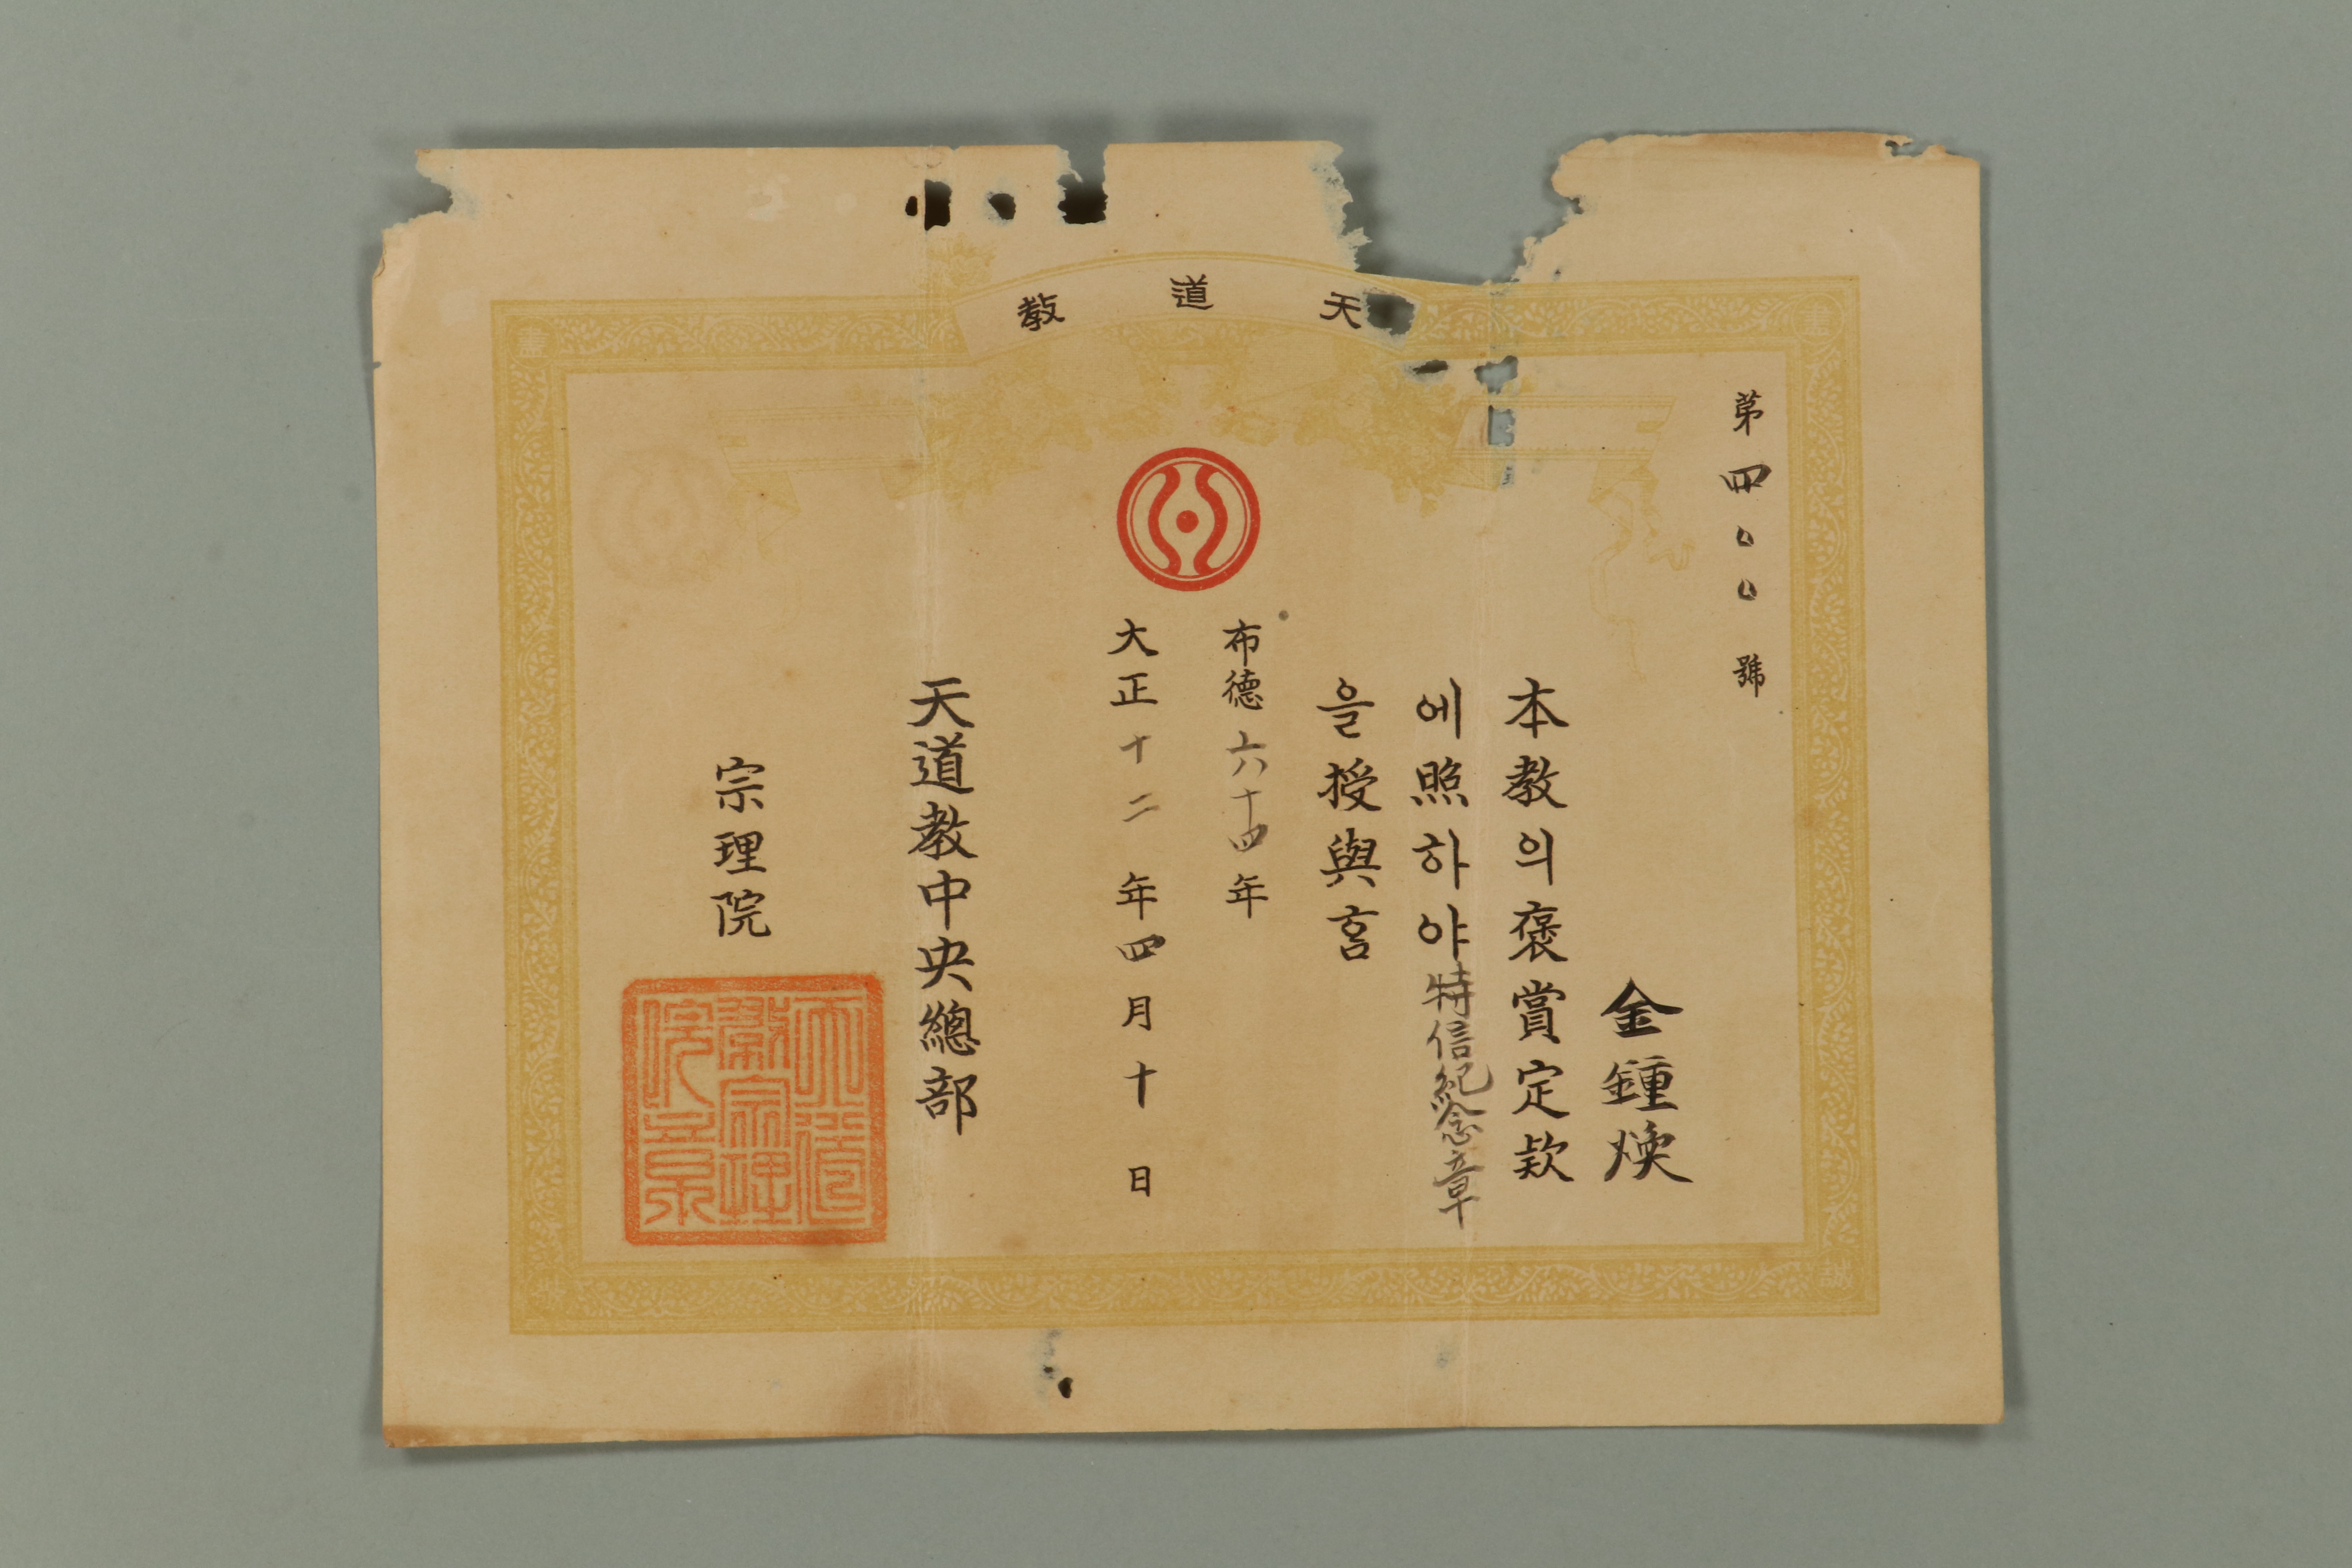 天道教
第四〇〇號
金鍾煥
本教의褒賞定欵
에照하야特信紀念章
을授與홈
布德六十四年
大正十二年四月十日
天道教中央總部
宗理院
天道教宗理院之章
誠